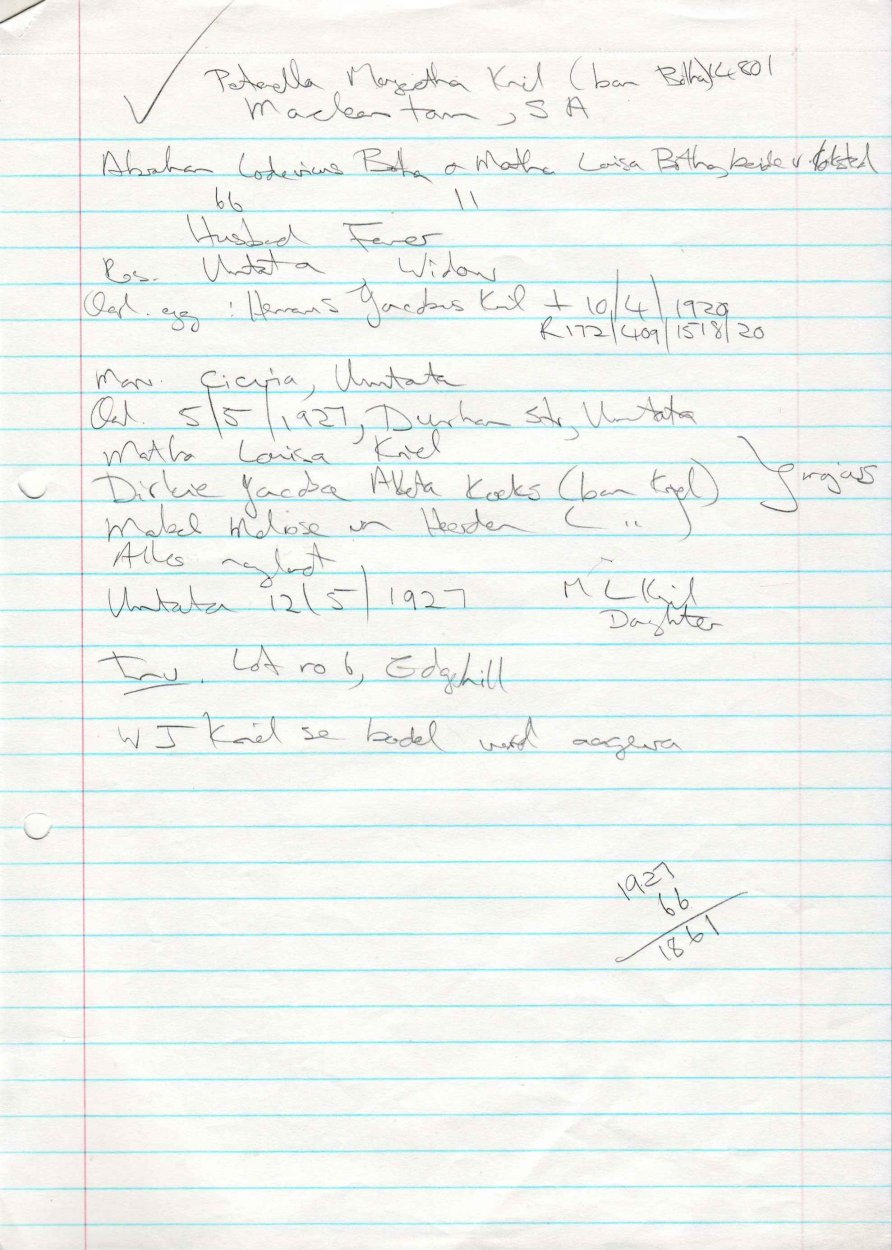 Petronella Margretha Kriel (born Botha) 4801
Macleantown, SA
Abraham Lodevicus Botha & Martha Louisa Botha, beide v. Kokstad
66 11
Husband Farmer
Res. Umtata, Widow
Oorl. egg : Hermanus Jacobus Kriel + 10/4/1920
R172/409/1518/20
Marr. Cicira, Umtata
Oorl. 5/5/1927, Durham Str, Umtata
Martha Louisa Kriel
Dirkie Jacoba Aletta (born Kriel)
Mabel van Heerden ( " ) } majors
Alles
Umtata 12/5/1927 M L Kriel
Daughter
Inv. Lot no 6, Edgehill
W J Kriel se boedel word
1927
66
1861